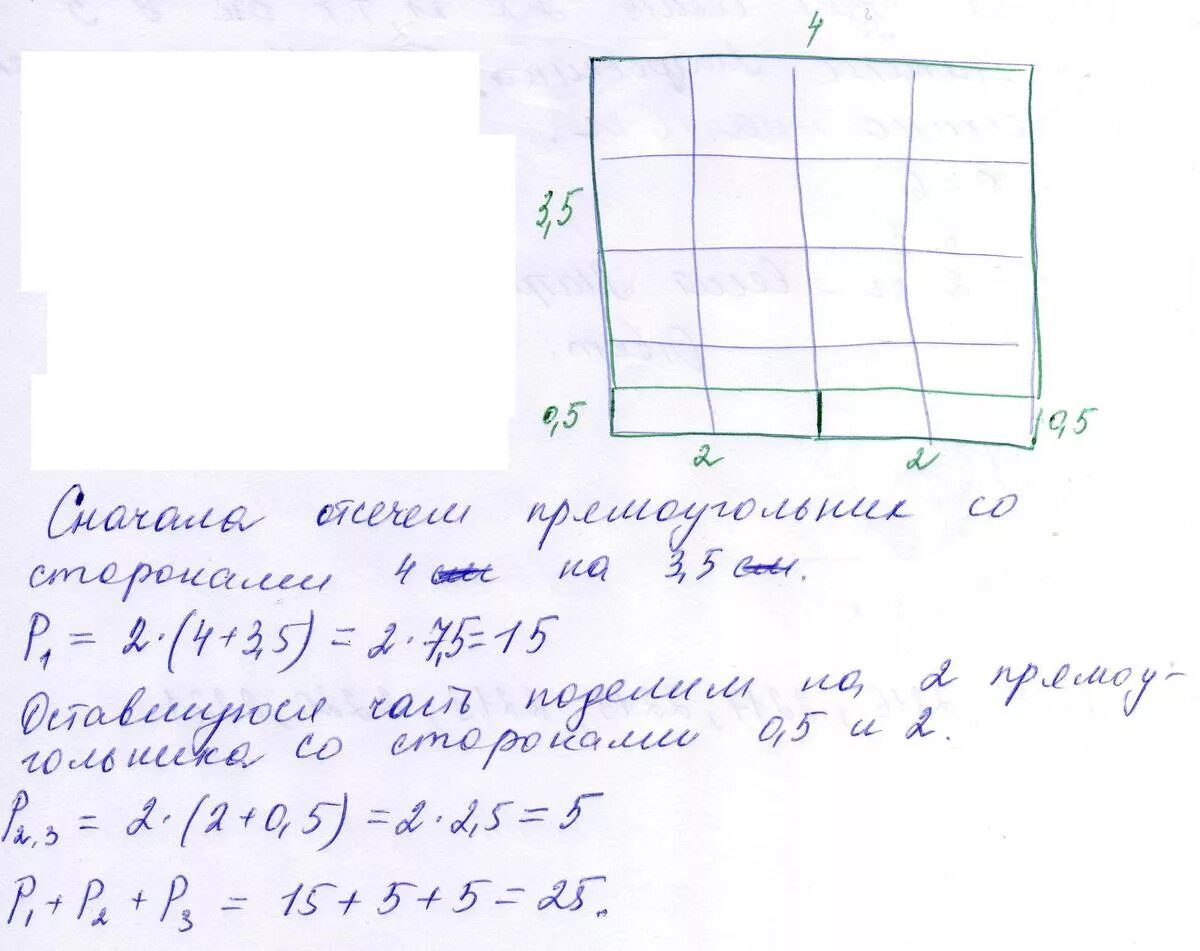 4
3,5
0,5
0,5
2 2
Сначала отсечем прямоугольник со
сторонами 4 см на 3,5 см.
P₁ = 2·(4+3,5) = 2·7,5=15
Оставшуюся часть поделим на 2 прямоу-
гольника со сторонами 0,5 и 2.
P₂,₃ = 2·(2+0,5) = 2·2,5 = 5
P₁ + P₂ + P₃ = 15 + 5 + 5 = 25.